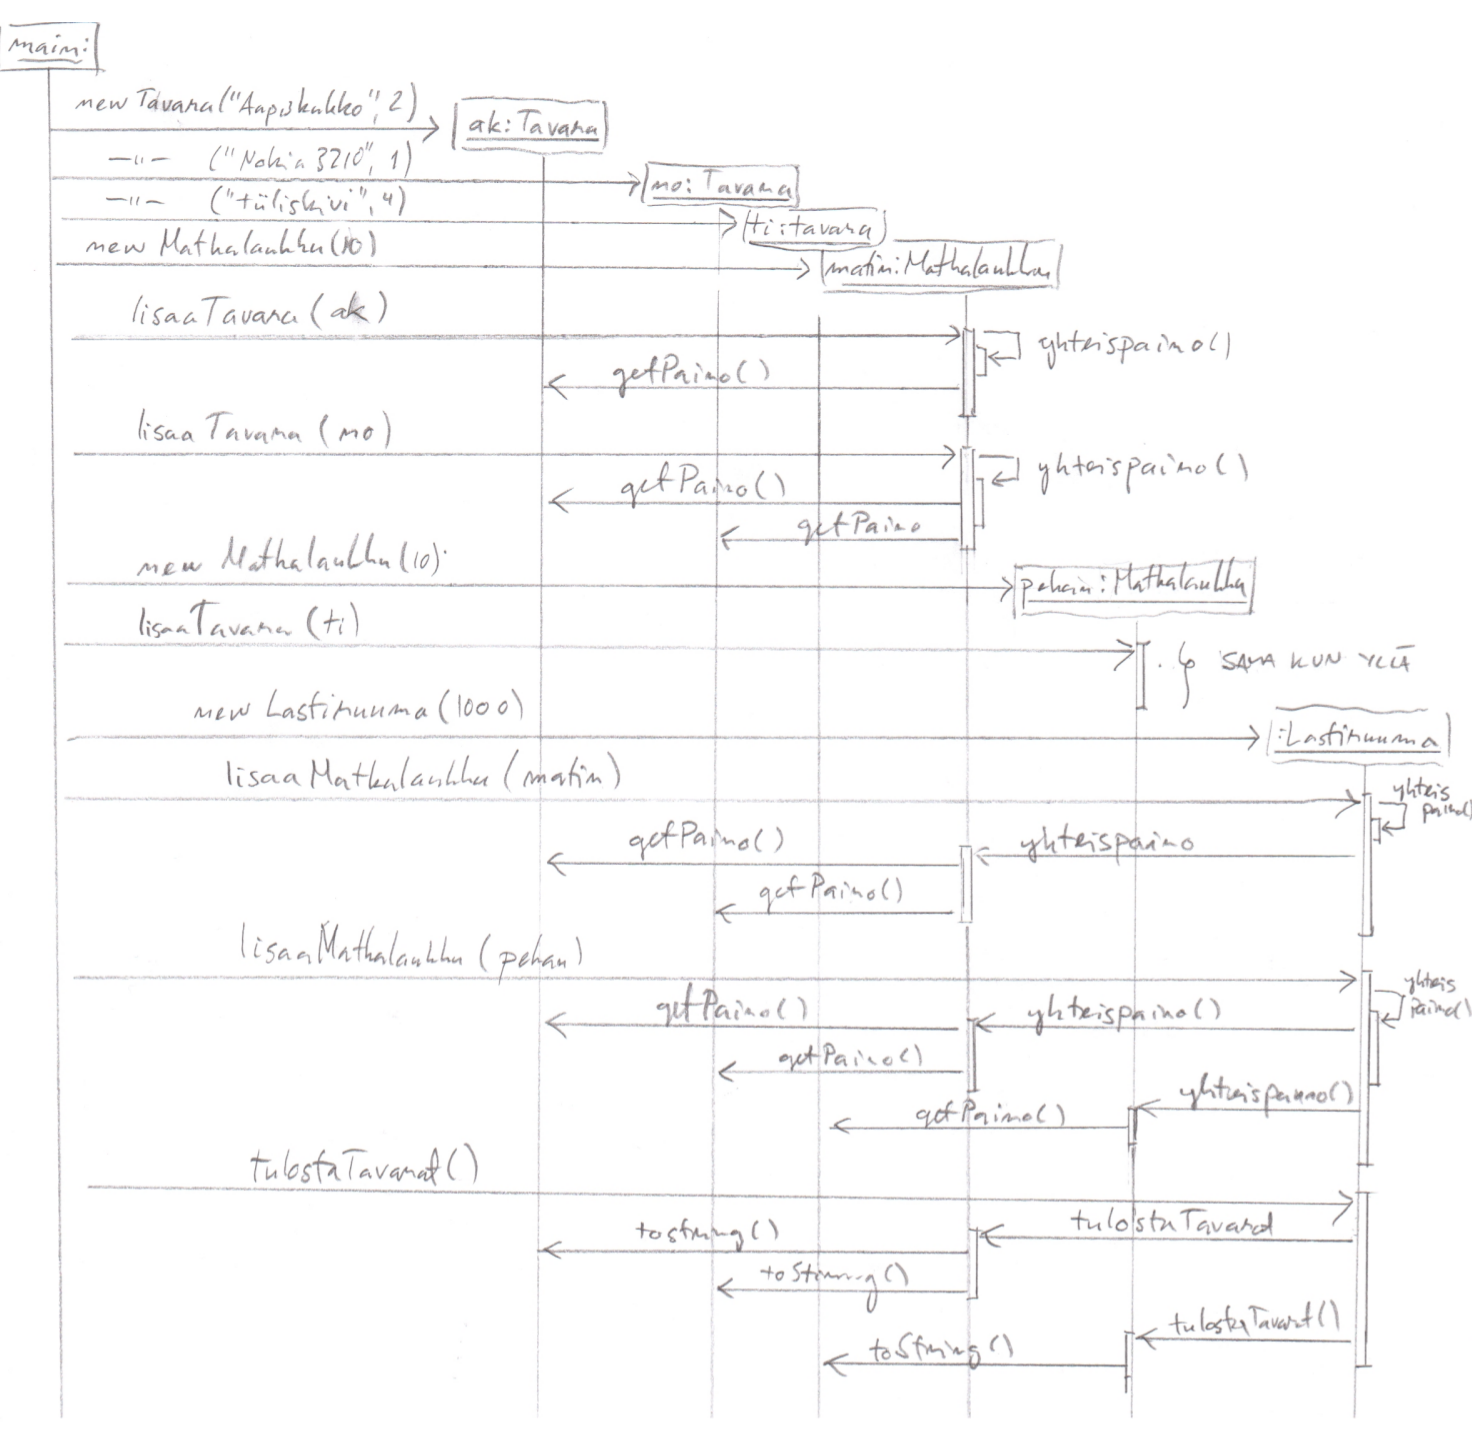 main:
new Tavara("Aapiskukko", 2)
ak:Tavara
—"— ("Nokia 3210", 1)
no: Tavara
—"— ("tiiliskivi", 4)
ti:tavara
new Matkalaukku(10)
matin:Matkalaukku
lisaaTavara(ak)
yhteispaino()
getPaino()
lisaaTavara(no)
yhteispaino()
getPaino()
getPaino
new Matkalaukku(10)
pekan:Matkalaukku
lisaaTavara(ti)
SAMA KUN YLLÄ
new Lastiruuma(1000)
:Lastiruuma
lisaaMatkalaukku(matin)
yhteis
paino()
getPaino()
yhteispaino
getPaino()
lisaaMatkalaukku(pekan)
yhteis
paino()
getPaino()
yhteispaino()
getPaino()
yhteispaino()
getPaino()
tulostaTavarat()
tulostaTavarat
tostring()
toString()
tulostaTavarat()
toString()